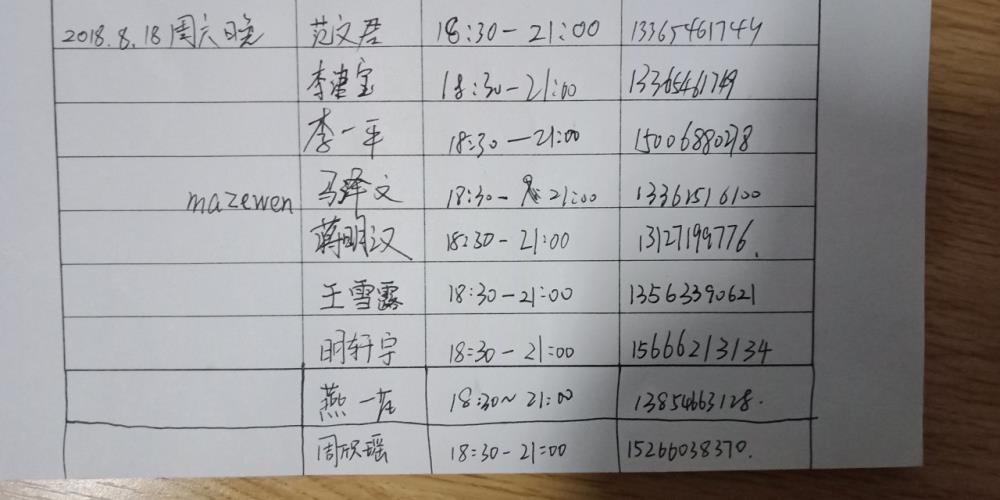 2018.8.18周六晚 范文君 18:30-21:00 13365461744
李建宝 18:30-21:00 13365461749
李一平 18:30-21:00 15006880278
mazewen 马泽文 18:30-21:00 13361516100
蒋明汉 18:30-21:00 13127199776.
王雪露 18:30-21:00 13563390621
明轩宇 18:30-21:00 15666213134
燕一 18:30~21:00 13854663128.
周欣瑶 18:30-21:00 15266038370.